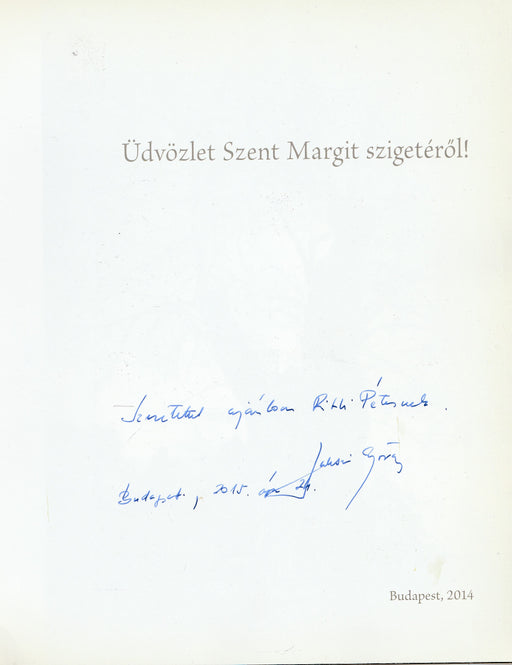 Üdvözlet Szent Margit szigetéről!
Szeretettel ajánlom Rikli Péternek.
György
Budapest, 2015. ápr. 24.
Budapest, 2014